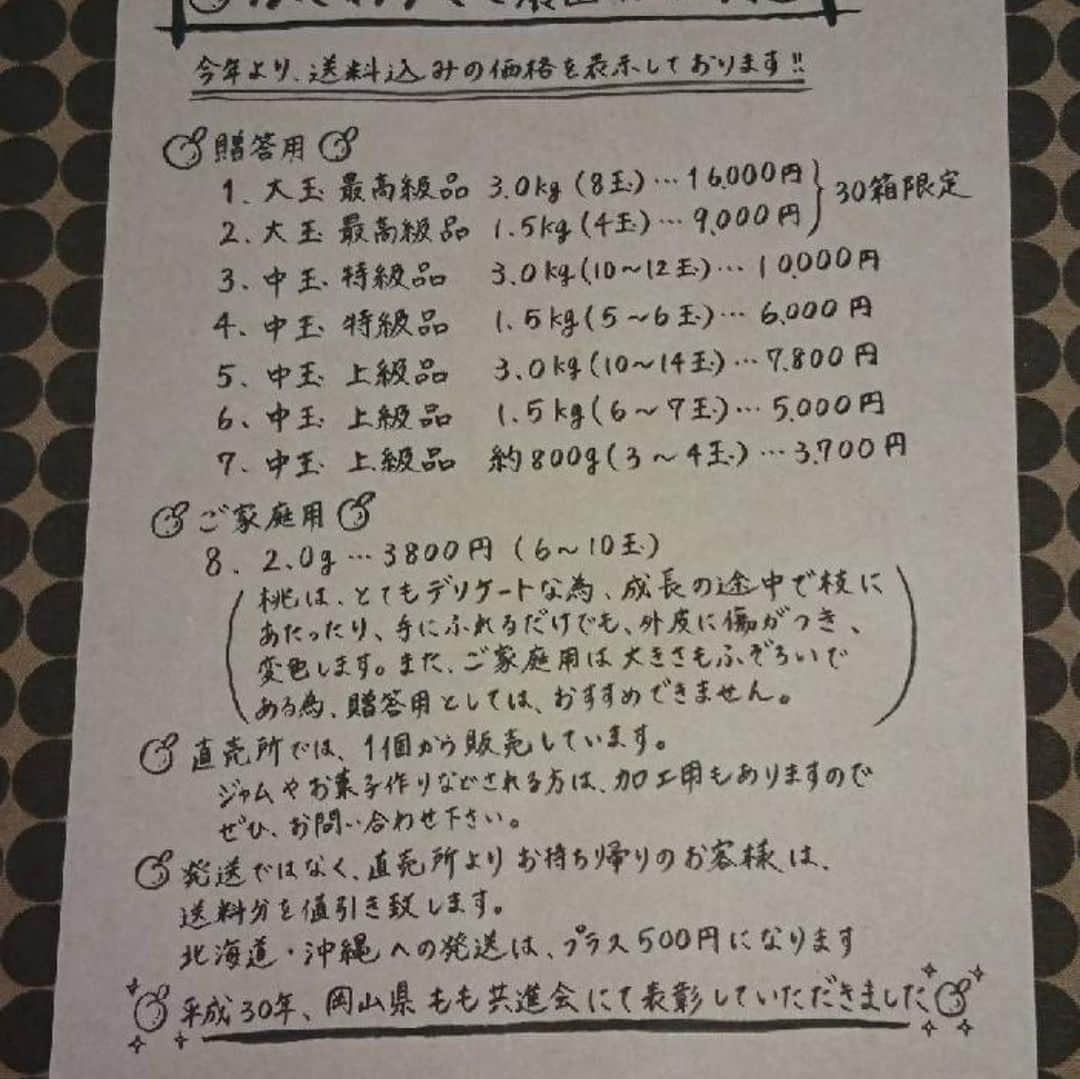 今年より、送料込みの価格を表示しております!!
贈答用
1. 大玉 最高級品 3.0kg (8玉)…16,000円
30箱限定
2. 大玉 最高級品 1.5kg (4玉)…9,000円
3、中玉 特級品 3.0kg (10～12玉)…10,000円
4、中玉 特級品 1.5kg (5～6玉)…6,000円
5、中玉 上級品 3.0kg (10～14玉)…7,800円
6、中玉 上級品 1.5kg (6～7玉)…5,000円
7、中玉 上級品 約800g (3～4玉)…3,700円
ご家庭用
8. 2.0g…3800円 (6～10玉)
(桃は、とてもデリケートな為、成長の途中で枝に
あたったり、手にふれるだけでも、外皮に傷がつき、
変色します。また、ご家庭用は大きさもふぞろいで
ある為、贈答用としては、おすすめできません。)
直売所では、1個から販売しています。
ジャムやお菓子作りなどされる方は、加工用もありますので
ぜひ、お問い合わせ下さい。
発送ではなく、直売所よりお持ち帰りのお客様は、
送料分を値引き致します。
北海道・沖縄への発送は、プラス500円になります
平成30年、岡山県もも共進会にて表彰していただきました